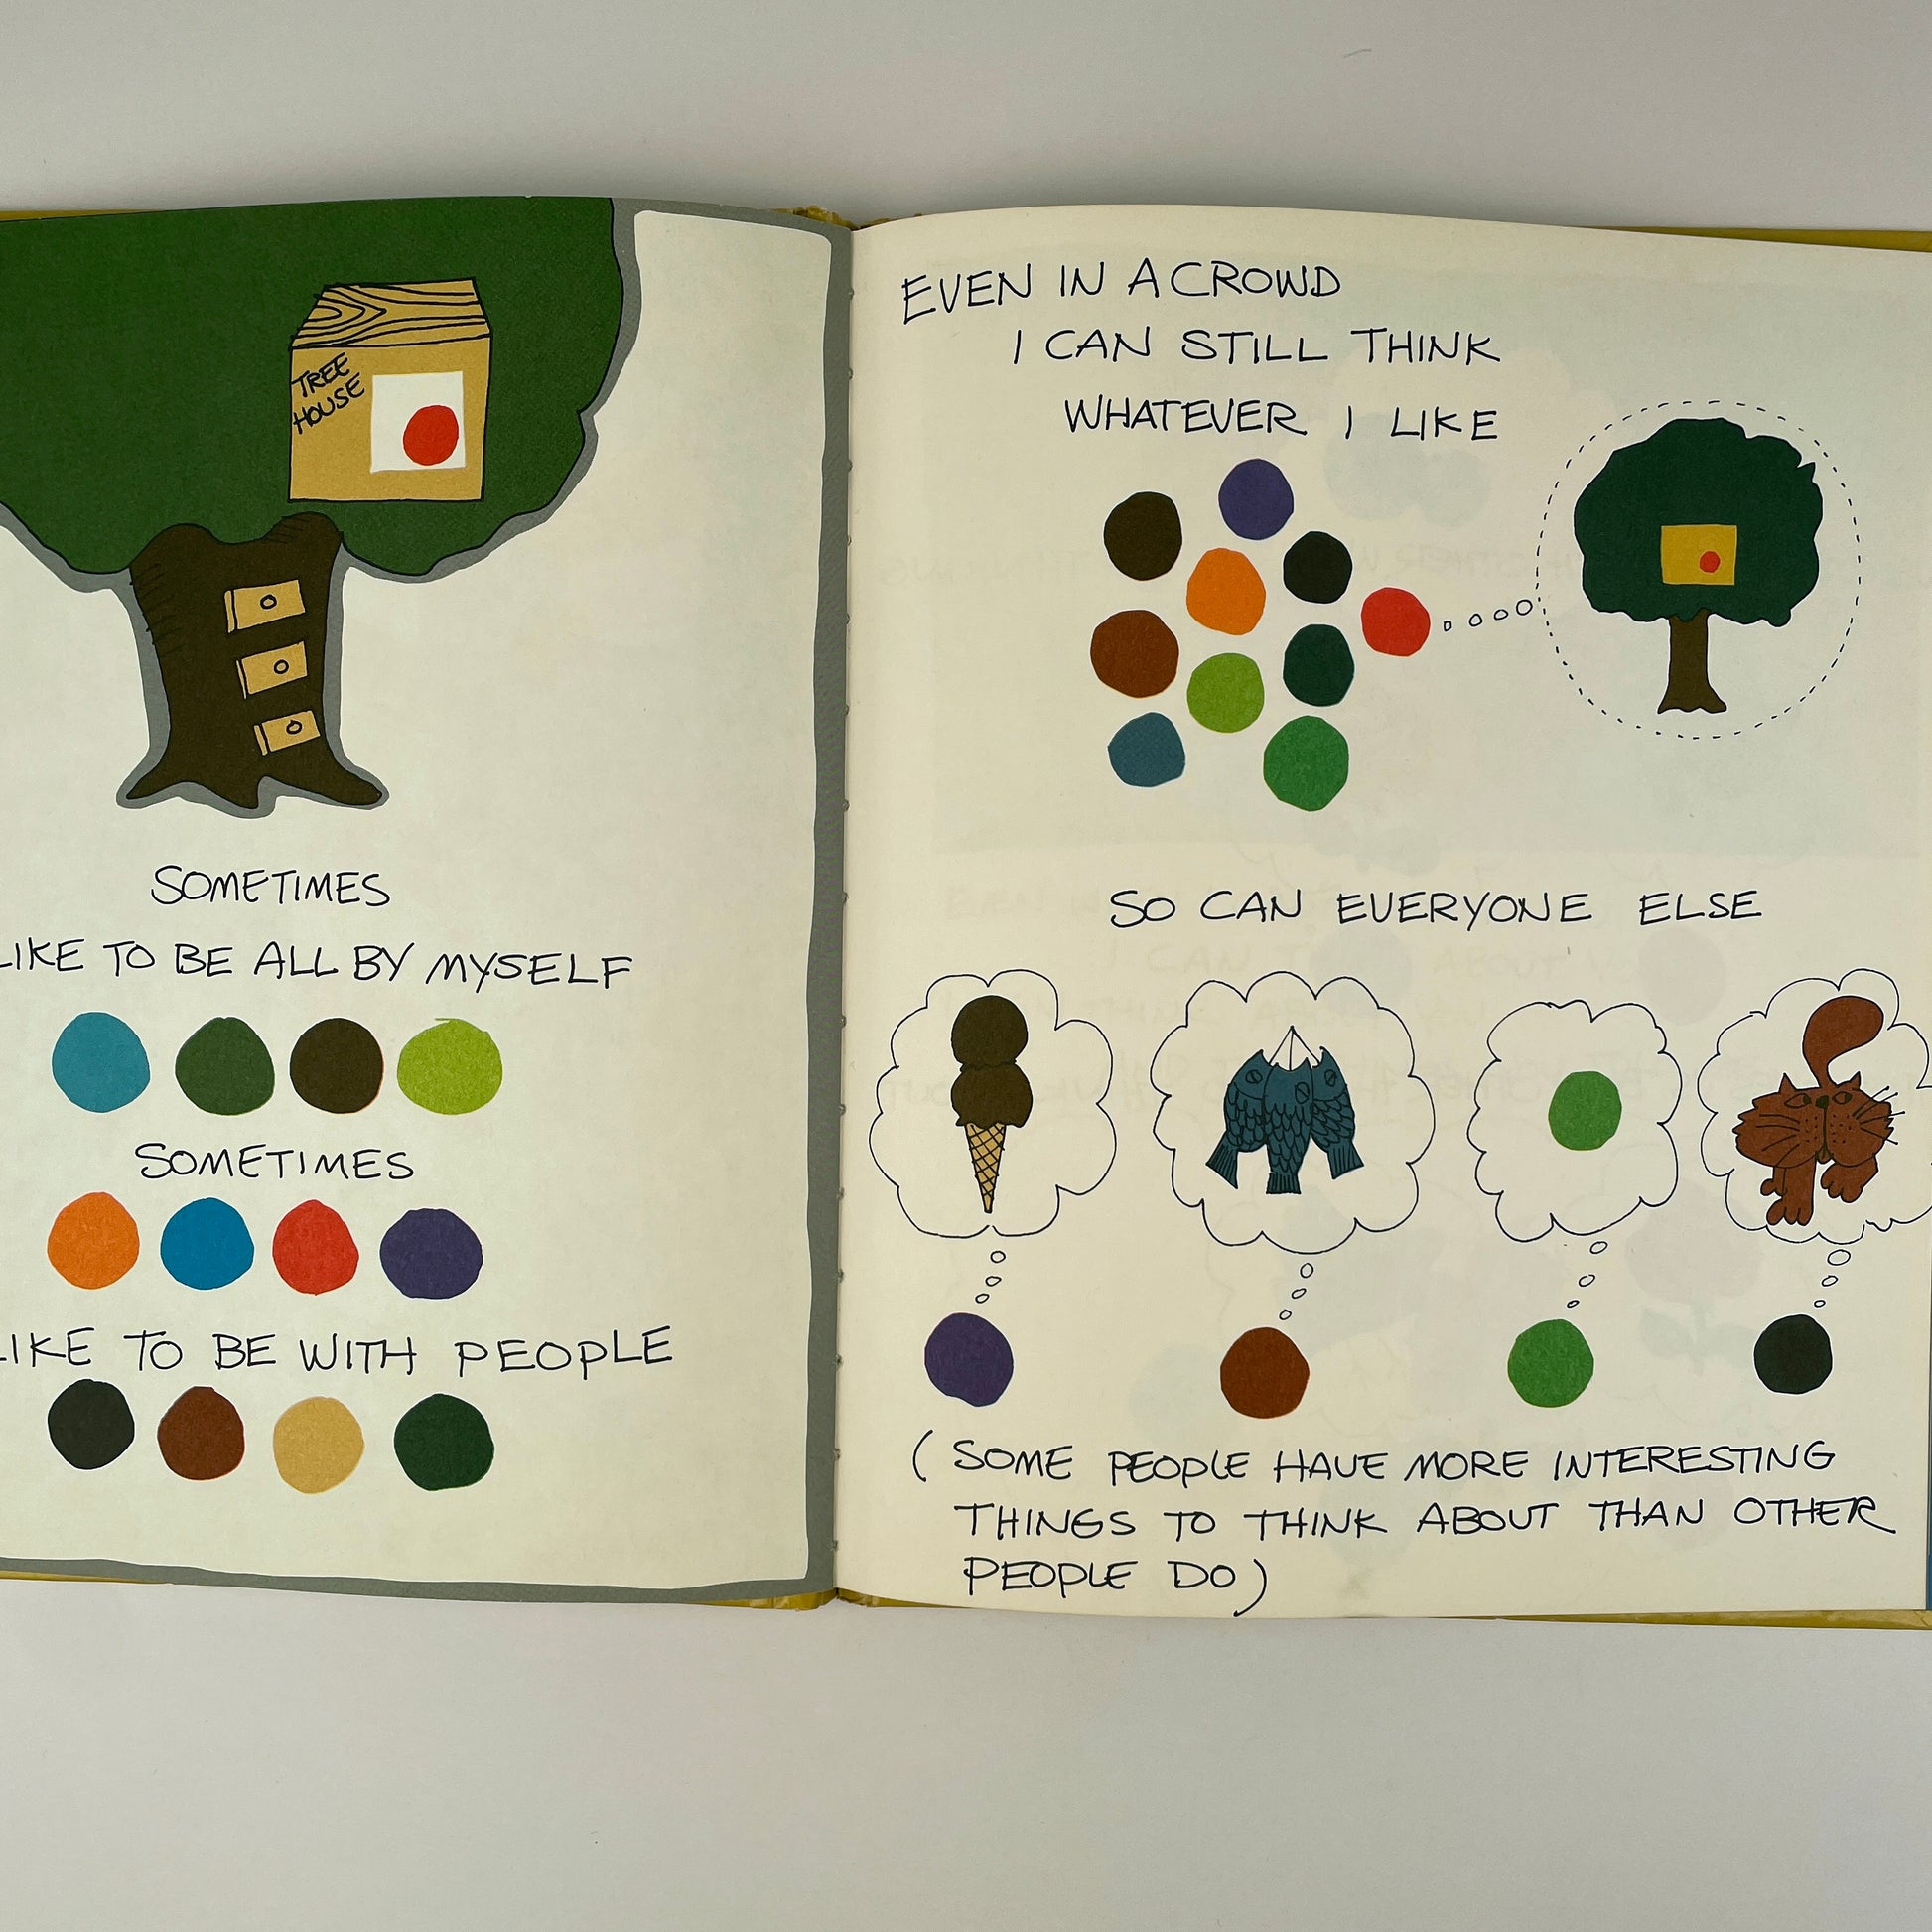 TREE
HOUSE
SOMETIMES
LIKE TO BE ALL BY MYSELF
SOMETIMES
LIKE TO BE WITH PEOPLE
EVEN IN A CROWD
I CAN STILL THINK
WHATEVER I LIKE
SO CAN EVERYONE ELSE
( SOME PEOPLE HAVE MORE INTERESTING
THINGS TO THINK ABOUT THAN OTHER
PEOPLE DO)